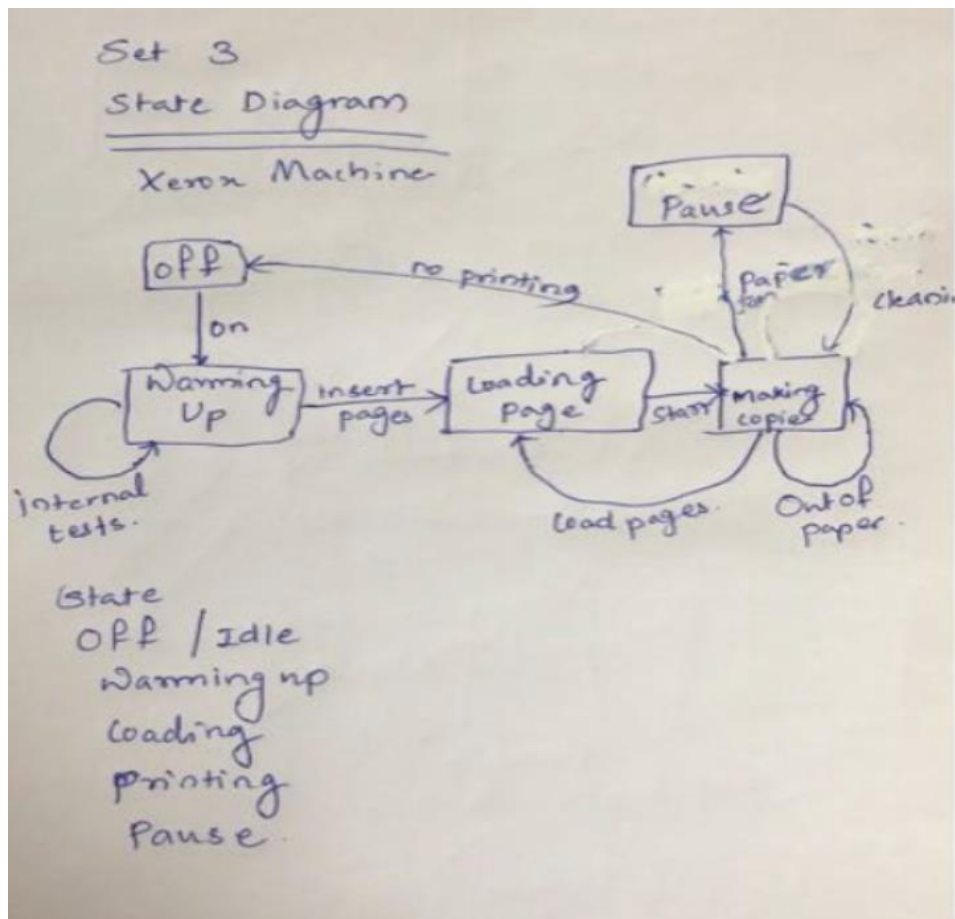 Set 3
State Diagram
Xerox Machine
Pause
off
no printing
paper
jam
cleanin
on
Warming
Up
insert
pages
Loading
page
Start
making
copies
internal
tests.
Load pages.
Out of
paper.
State
Off / Idle
Warming up
Loading
printing
Pause.